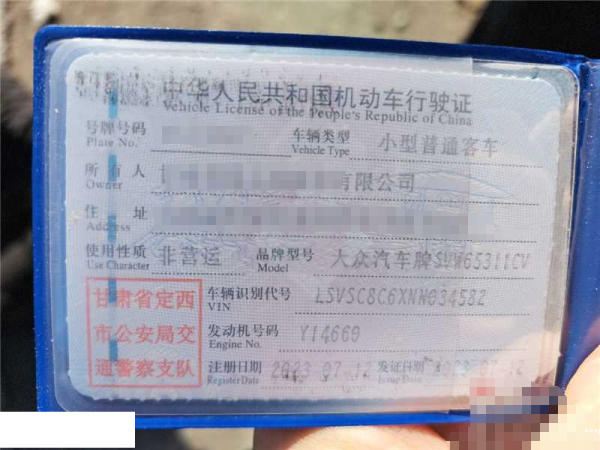 中华人民共和国机动车行驶证
Vehicle License of the People's Republic of China
号牌号码 车辆类型 小型普通客车
Plate No. Vehicle Type
所有人 有限公司
Owner
住址
Address
使用性质 非营运 品牌型号 大众汽车牌SVW65311CV
Use Character Model
甘肃省定西 车辆识别代号 LSVSC8C6XNN034582
VIN
市公安局交 发动机号码 Y14660
Engine No.
通警察支队 注册日期 2023 07 12 发证日期 2023 07 12
Register Date Issue Date